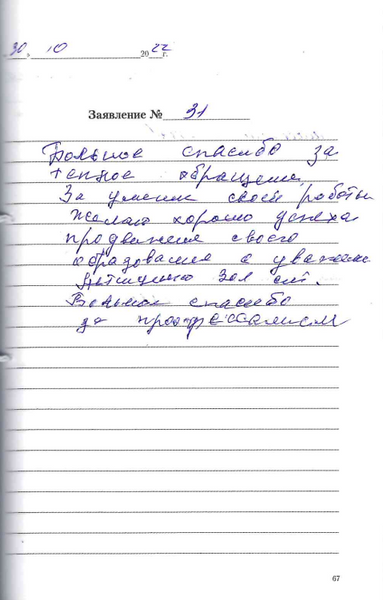 30. 10 2022 г.
Заявление № 31
Большое спасибо за
теплое обращение
За умение своей работы
Желаю хорошо успеха
продвжения своего
образования и уважение
спасибо
за профессионализм
67